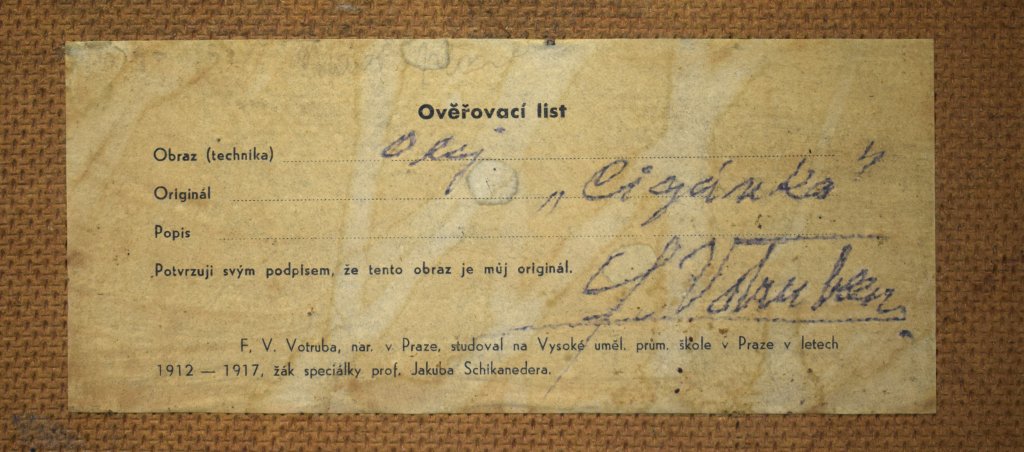 Ověřovací list
Obraz (technika) olej
Originál „Cigánka“
Popis
Potvrzuji svým podpisem, že tento obraz je můj originál.
Votruba
F. V. Votruba, nar. v Praze, studoval na Vysoké uměl. prům. škole v Praze v letech
1912 — 1917, žák speciálky prof. Jakuba Schikanedera.